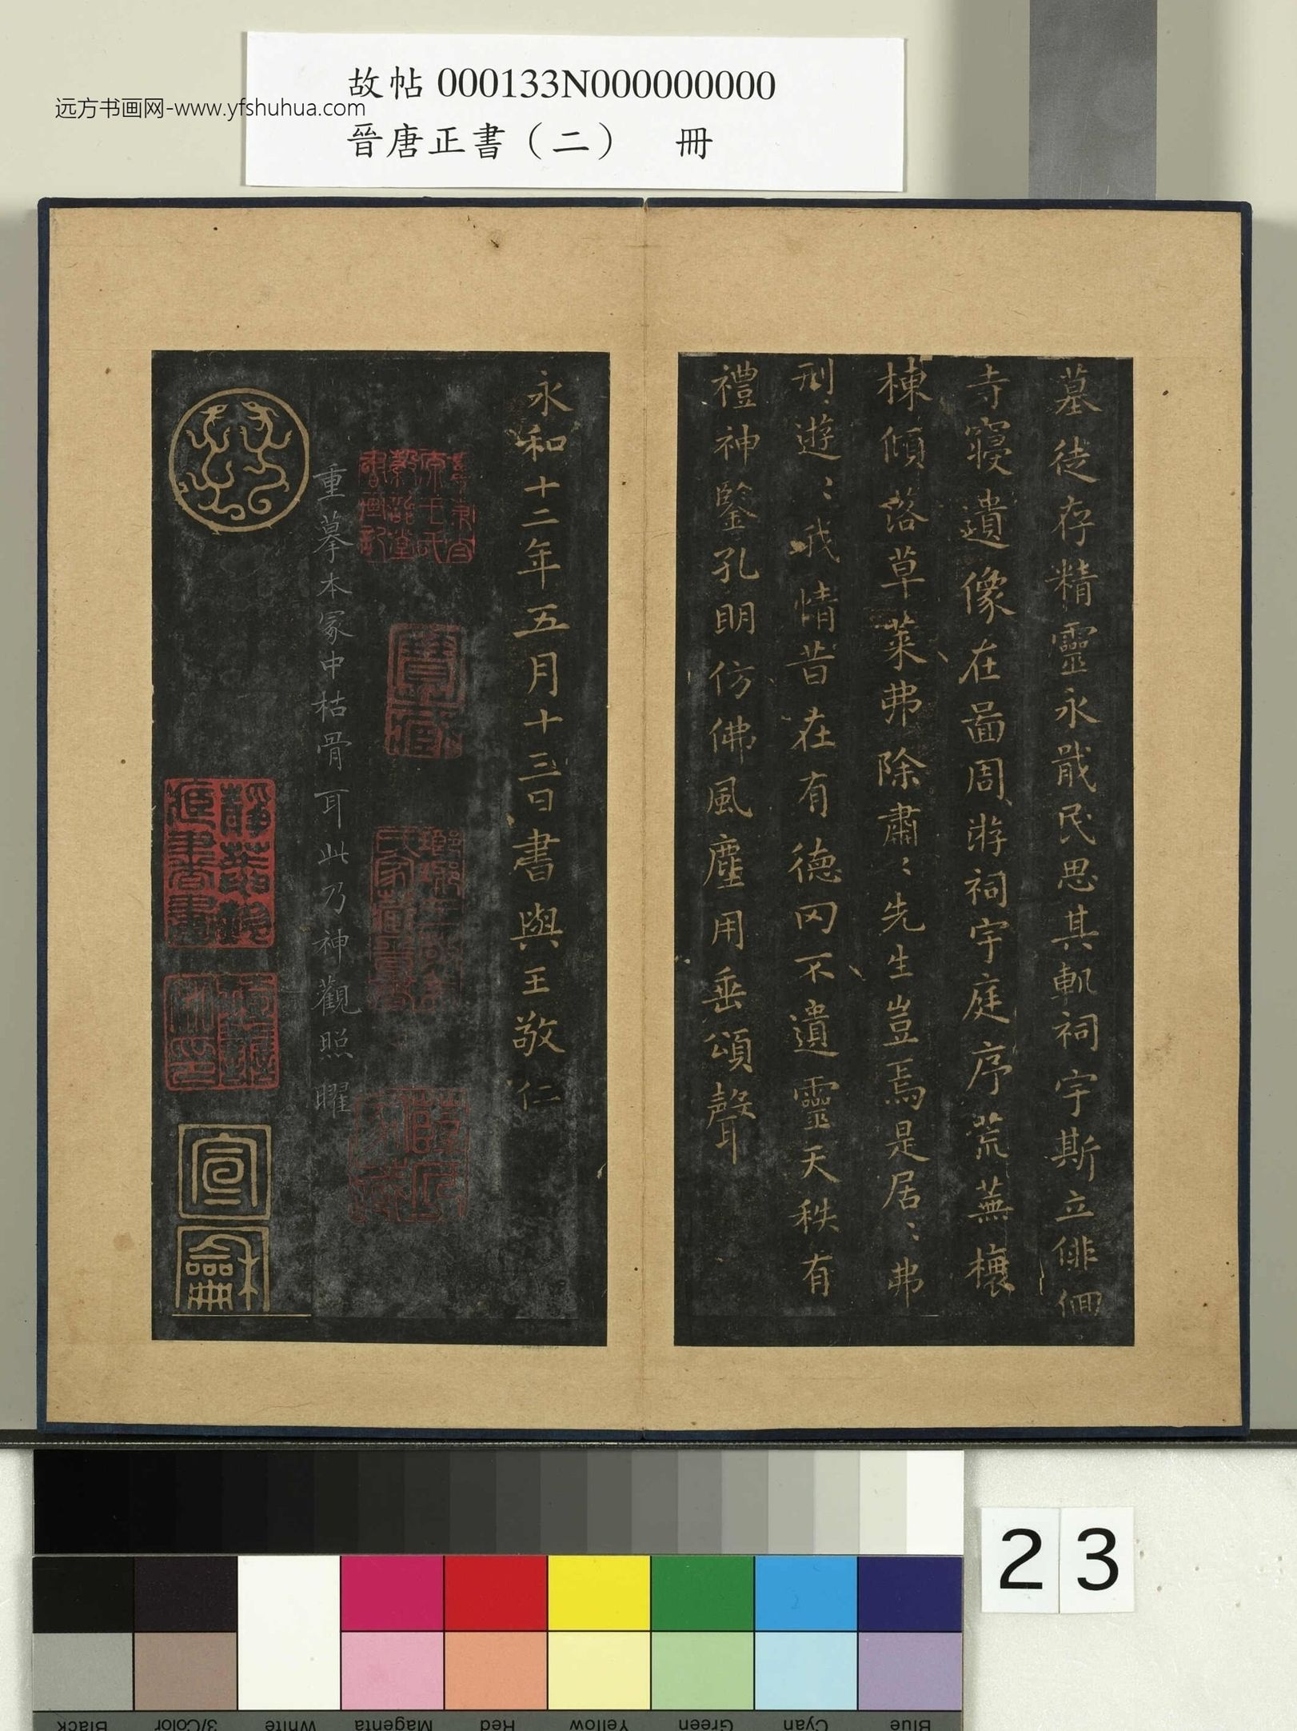 故帖 000133N000000000
远方书画网-www.yfshuhua.com
晉唐正書（二） 冊
墓徒存精靈永戢民思其軌祠宇斯立俳佪
寺寑遺像在啚周游祠宇庭序荒蕪榱
棟傾落草萊弗除肅〻先生豈焉是居〻弗
刑遊〻我情昔在有德冈不遺靈天秩有
禮神鑒孔明仿佛風塵用垂頌聲
永和十二年五月十三日書與王敬仁
寶藏
重摹本冢中枯骨耳此乃神觀照曜
宣
龢
23
Black
3/Color
White
Magenta
Red
Yellow
Green
Cyan
Blue